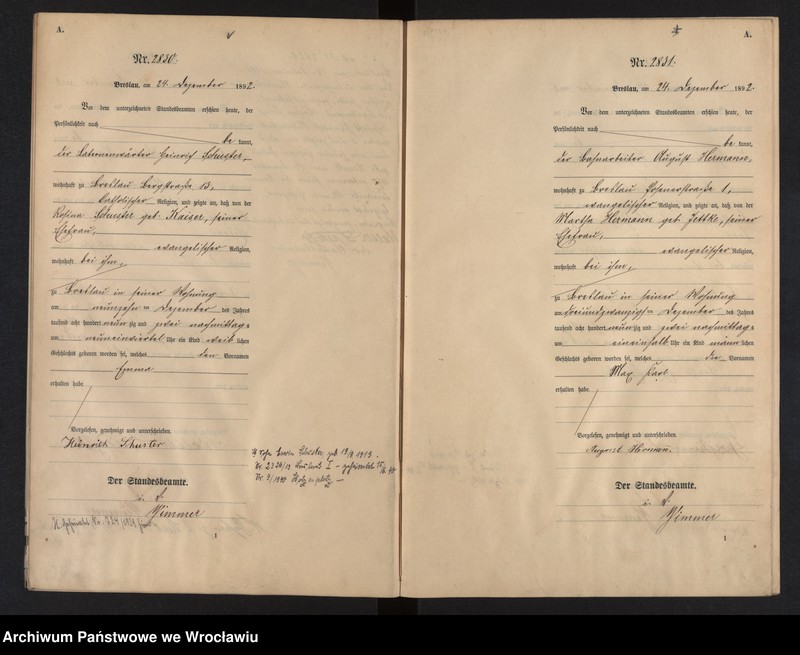 A.
Nr. 2830.
Breslau, am 24. Dezember 1892.
Vor dem unterzeichneten Standesbeamten erschien heute, der
Persönlichkeit nach
be kannt,
der Laternenwärter Heinrich Schuster,
wohnhaft zu Breslau Bergstraße 13,
katholischer Religion, und zeigte an, daß von der
Rosina Schuster geb. Kaiser, seiner
Ehefrau,
evangelischer Religion,
wohnhaft bei ihm,
zu Breslau in seiner Wohnung
am neunzehnten Dezember des Jahres
tausend acht hundert neunzig und zwei nachmittags
um neuneinviertel Uhr ein Kind weiblichen
Geschlechts geboren worden sei, welches den Vornamen
Emma
erhalten habe.
Vorgelesen, genehmigt und unterschrieben.
Heinrich Schuster
Der Standesbeamte.
Wimmer
1
A.
Nr. 2831.
Breslau, am 24. Dezember 1892.
Vor dem unterzeichneten Standesbeamten erschien heute, der
Persönlichkeit nach
be kannt,
der Bahnarbeiter August Hermann,
wohnhaft zu Breslau Posenerstraße 1,
evangelischer Religion, und zeigte an, daß von der
Martha Hermann geb. Jettke, seiner
Ehefrau,
evangelischer Religion,
wohnhaft bei ihm,
zu Breslau in seiner Wohnung
am dreiundzwanzigsten Dezember des Jahres
tausend acht hundert neunzig und zwei nachmittags
um eineinhalb Uhr ein Kind männlichen
Geschlechts geboren worden sei, welches die Vornamen
Max Karl
erhalten habe.
Vorgelesen, genehmigt und unterschrieben.
August Hermann
Der Standesbeamte.
Wimmer
1
Archiwum Państwowe we Wrocławiu